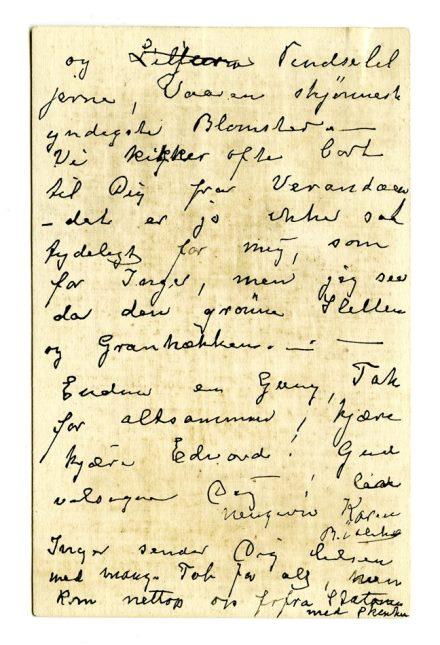 og Pindselil
jerne, Vaaren skjønneste
yndigste Blomster. —
Vi kikker ofte bort
til Dig fra Verandaen
– det er jo ikke saa
tydeligt for mig, som
for Inger, men jeg seer
da den grønne Sletten
og Granhækken. — . —
Endnu en Gang, Tak
for altsammen, kjære
kjære Edvard! Gud
velsigne Dig!
Karen
Inger sender Dig hilsen
med mange Tak for alt, hun
kom nettop op fra Stationen
med